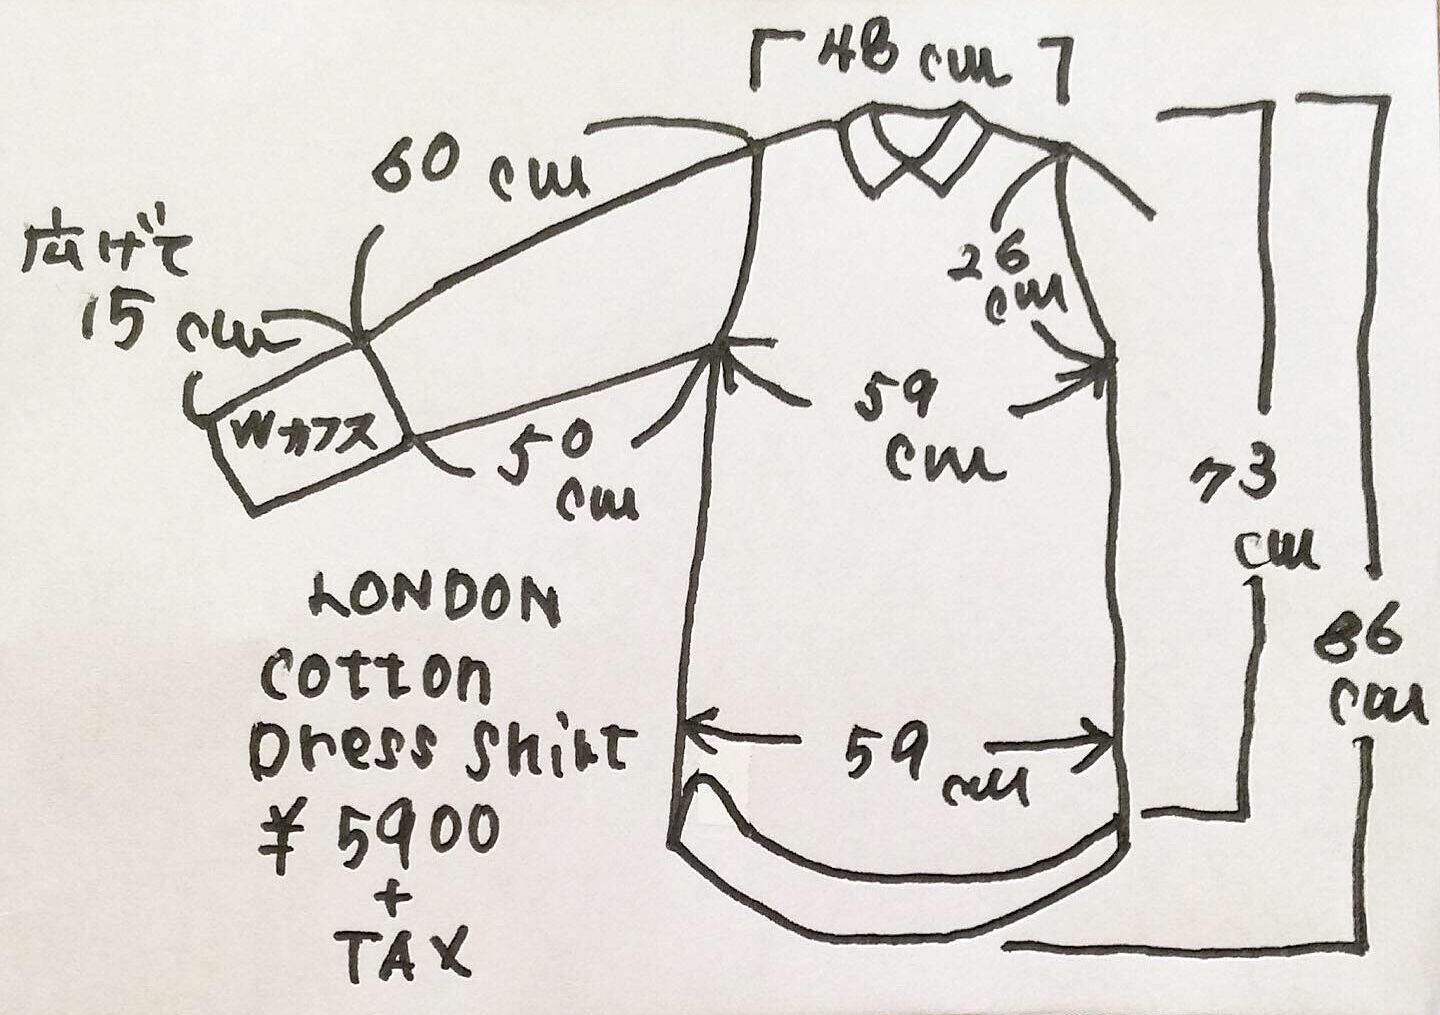 48 cm
60 cm
広げて
15 cm
26
cm
Wカフス
50
cm
59
cm
73
cm
86
cm
59 cm
LONDON
cotton
Dress shirt
¥ 5900
+
TAX